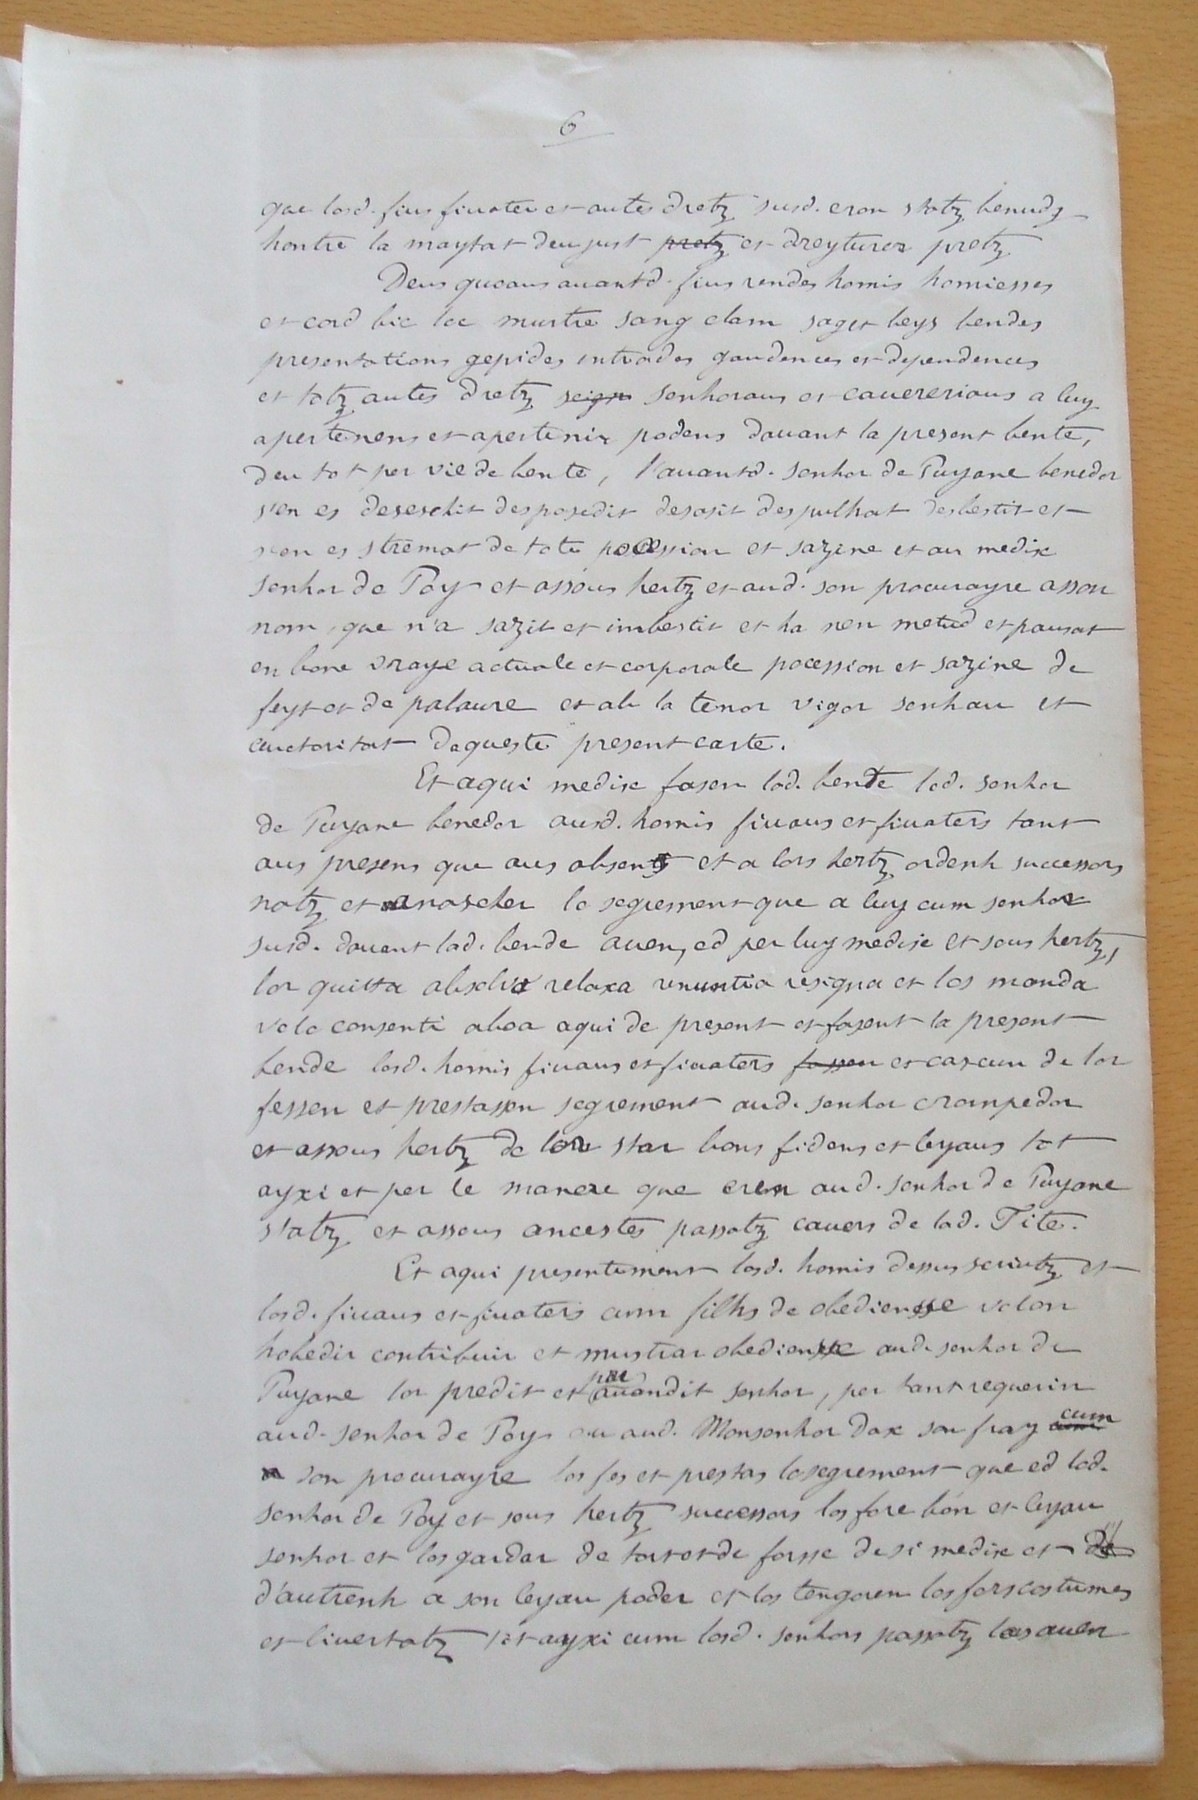 6
que losd. fius fiuater et autes dretz susd. eron statz benudz
hontre la maytat deu just pretz et dreyturer pretz
Deus quoaus auantd. fius rendes homis homiesses
et cord bic loc murtre sang clam saget leys bendes
presentations gepides intrades gaudences et dependences
et totz autes dretz seign senhoraus et cauereriaus a luy
apertenens et apertenir podens dauant la present bente,
deu tot per vie de bente, l'auantd. senhor de Puyane benedor
s'en es desexhit desposedit desasit despulhat desbestit et
s'en es stremat de tote pocession et sazine et au medix
senhor de Poy et assous hertz et aud. son procurayre assou
nom, que n'a sazit et imbestit et ha nen metud et pausat
en bone vraye actuale et corporale pocession et sazine de
feyt et de palaure et ab la tenor vigor senhau et
auctoritat daqueste present carte.
Et aqui medix fasen lad. bente lod. senhor
de Puyane benedor ausd. homis fiuaus et fiuaters tant
aus presens que aus absentz et a lors hertz ordenh successors
natz et anascher lo segrement que a luy cum senhor
susd. dauant lad. bende auen, ed per luy medix et sous hertz,
lor quitta absolvt relaxa renuntia resigna et los manda
volo consenti aboa aqui de present et fasent la present
bende losd. homis fiuaus et fiuaters fassen et cascun de lor
fessen et prestassen segrement aud. senhor crompedor
et assous hertz de lor star bons fidens et leyaus tot
ayxi et per le manere que eren aud. senhor de Puyane
statz et assous ancestes passatz cauers de lad. Tite.
Et aqui presentement losd. homis dessus scriutz et
losd. fiuaus et fiuaters cum filhs de obediensse volon
hobedir contribuir et mustrar obediensse aud. senhor de
Puyane lor predit et pre auandit senhor, per tant requerin
aud. senhor de Poy ou aud. Monsenhor Dax son fray cum cum
son procurayre los fes et prestas lo segrement que ed lod.
senhor de Poy et sous hertz successors los fore bon et leyau
senhor et los gardar de tort et de forsse de si medix et de
d'autrenh a son leyau poder et los tengoren los fors costumes
et livertatz tot ayxi cum losd. senhors passatz los auen